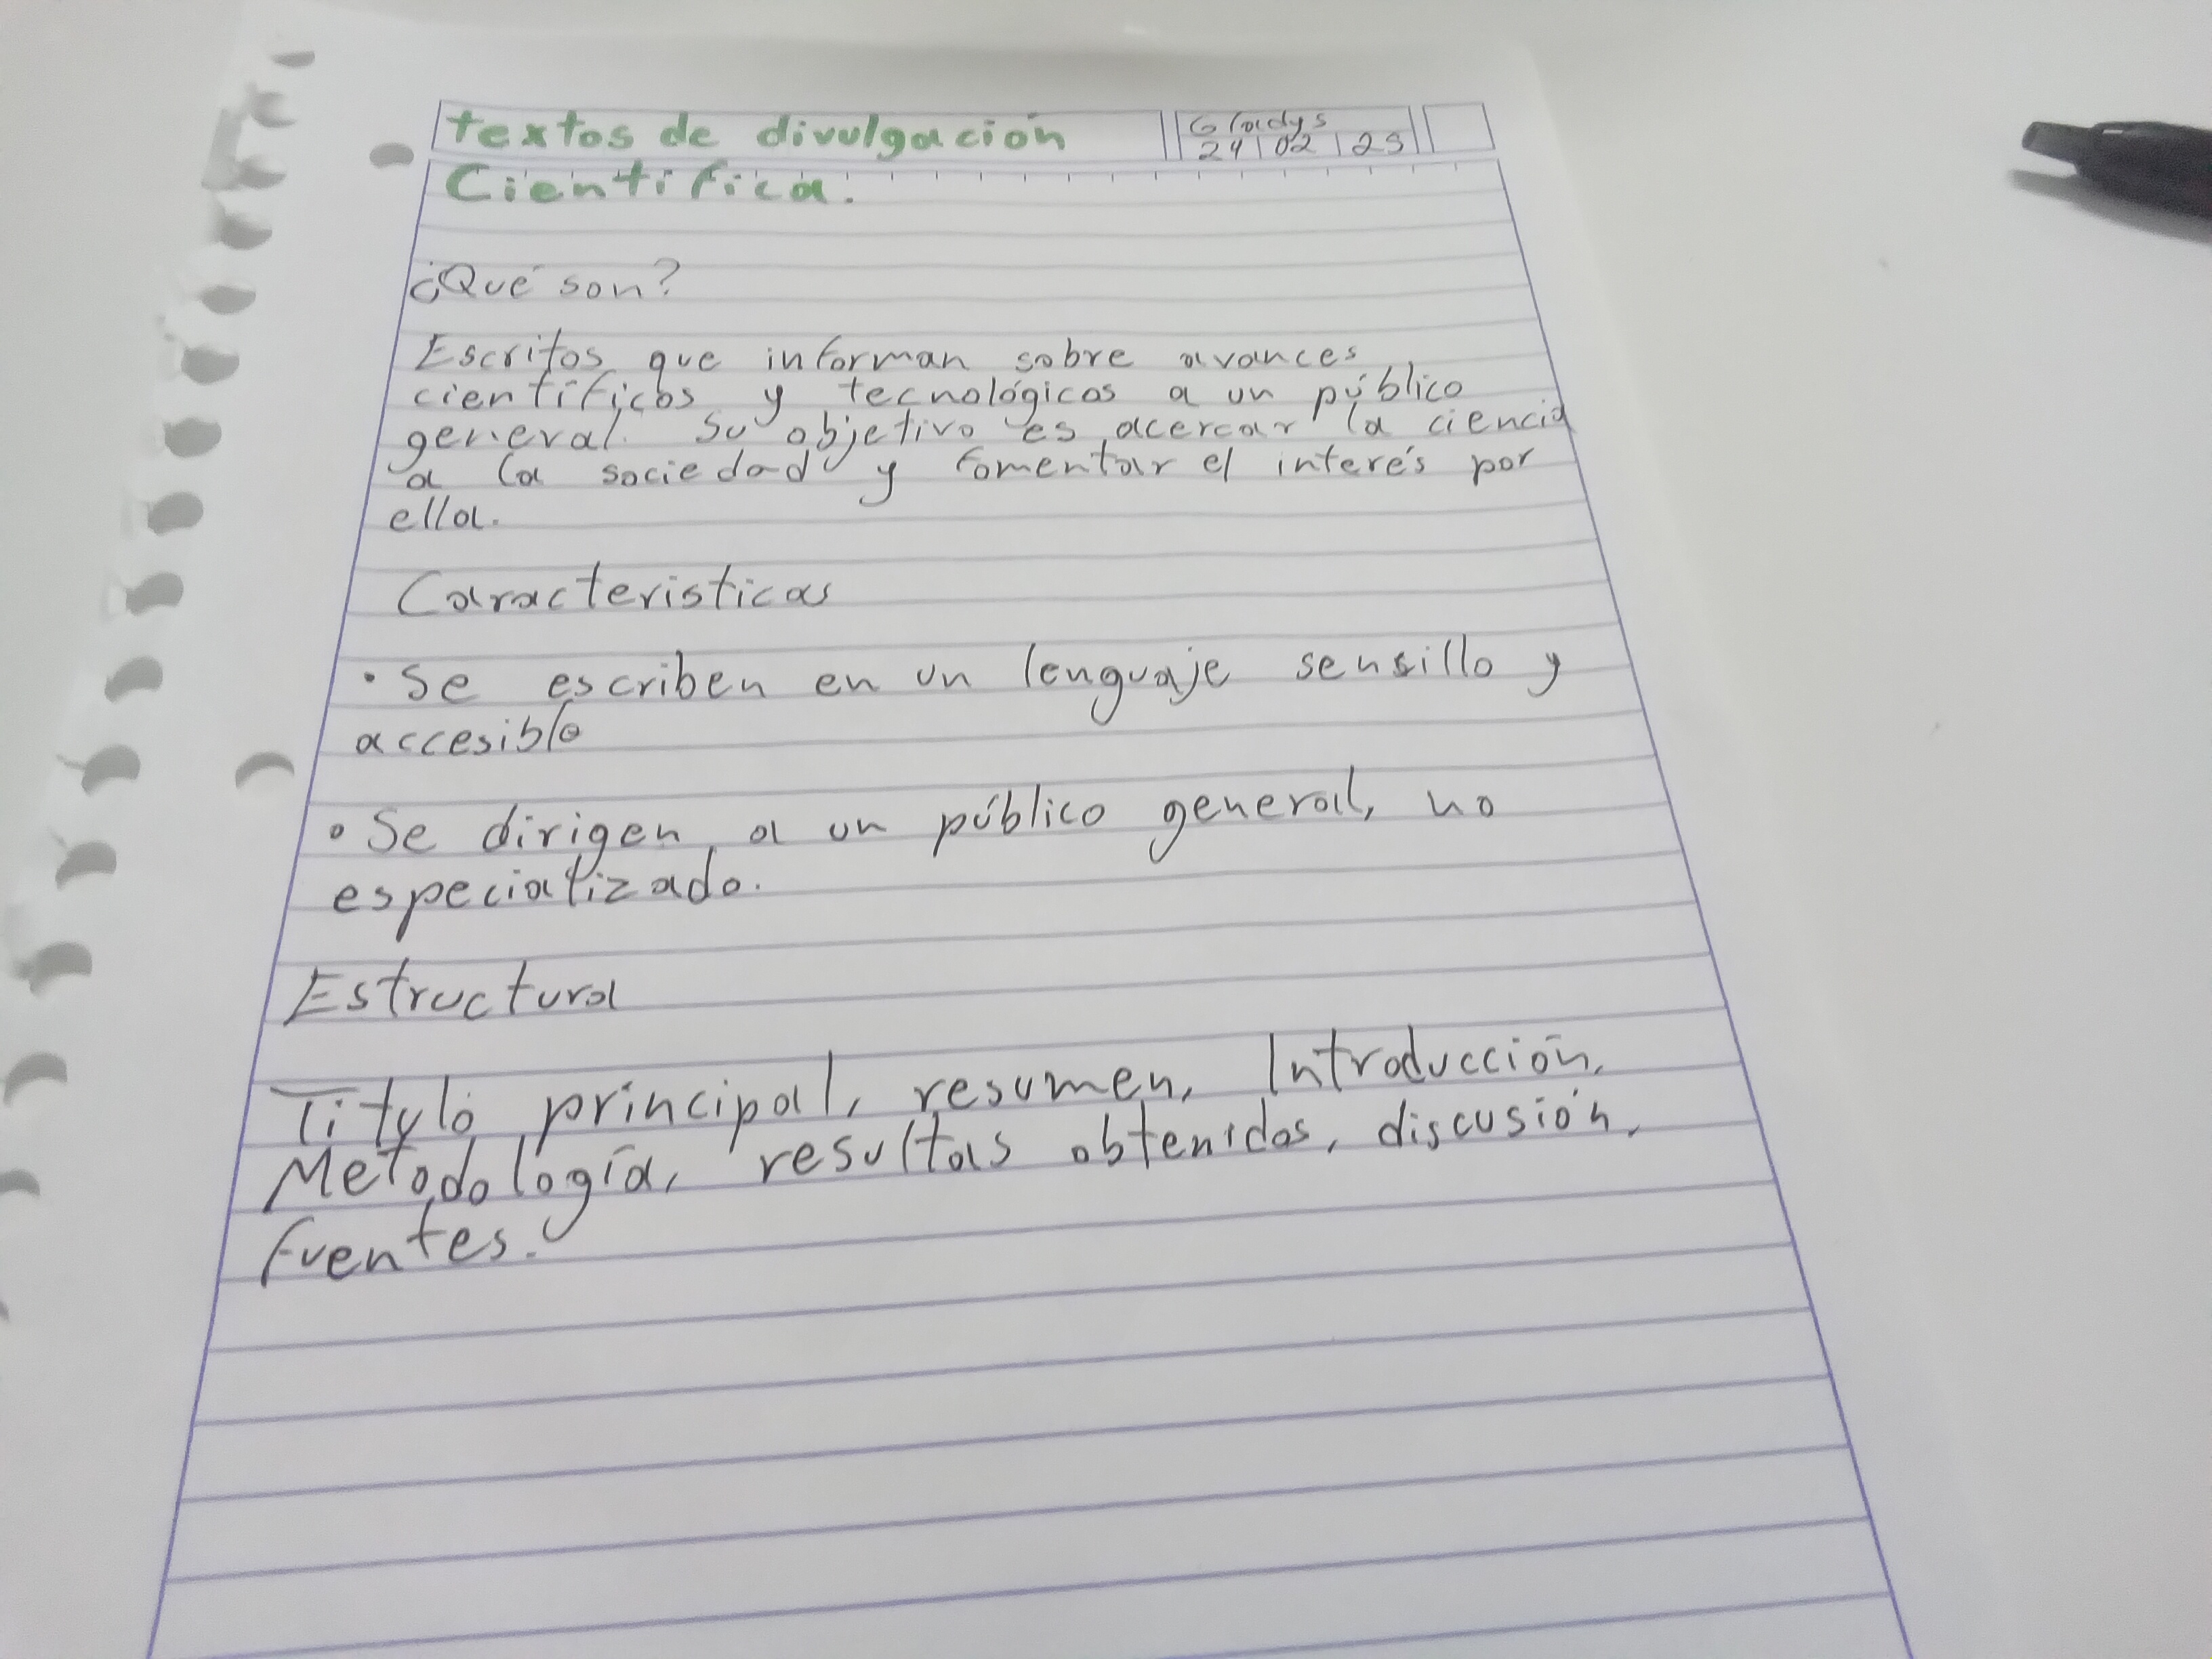 textos de divulgación
Gladys
24 02 25
Cientifica.
¿Qué son?
Escritos que informan sobre avances
científicos y tecnológicos a un público
general. Su objetivo es acercar la ciencia
a la sociedad y fomentar el interés por
ella.
Caracteristicas
· Se escriben en un lenguaje sensillo y
accesible
· Se dirigen a un público general, no
especializado.
Estructura
Titylo principal, resumen, Introducción,
Metodología, resultas obtenidos, discusión,
fuentes.